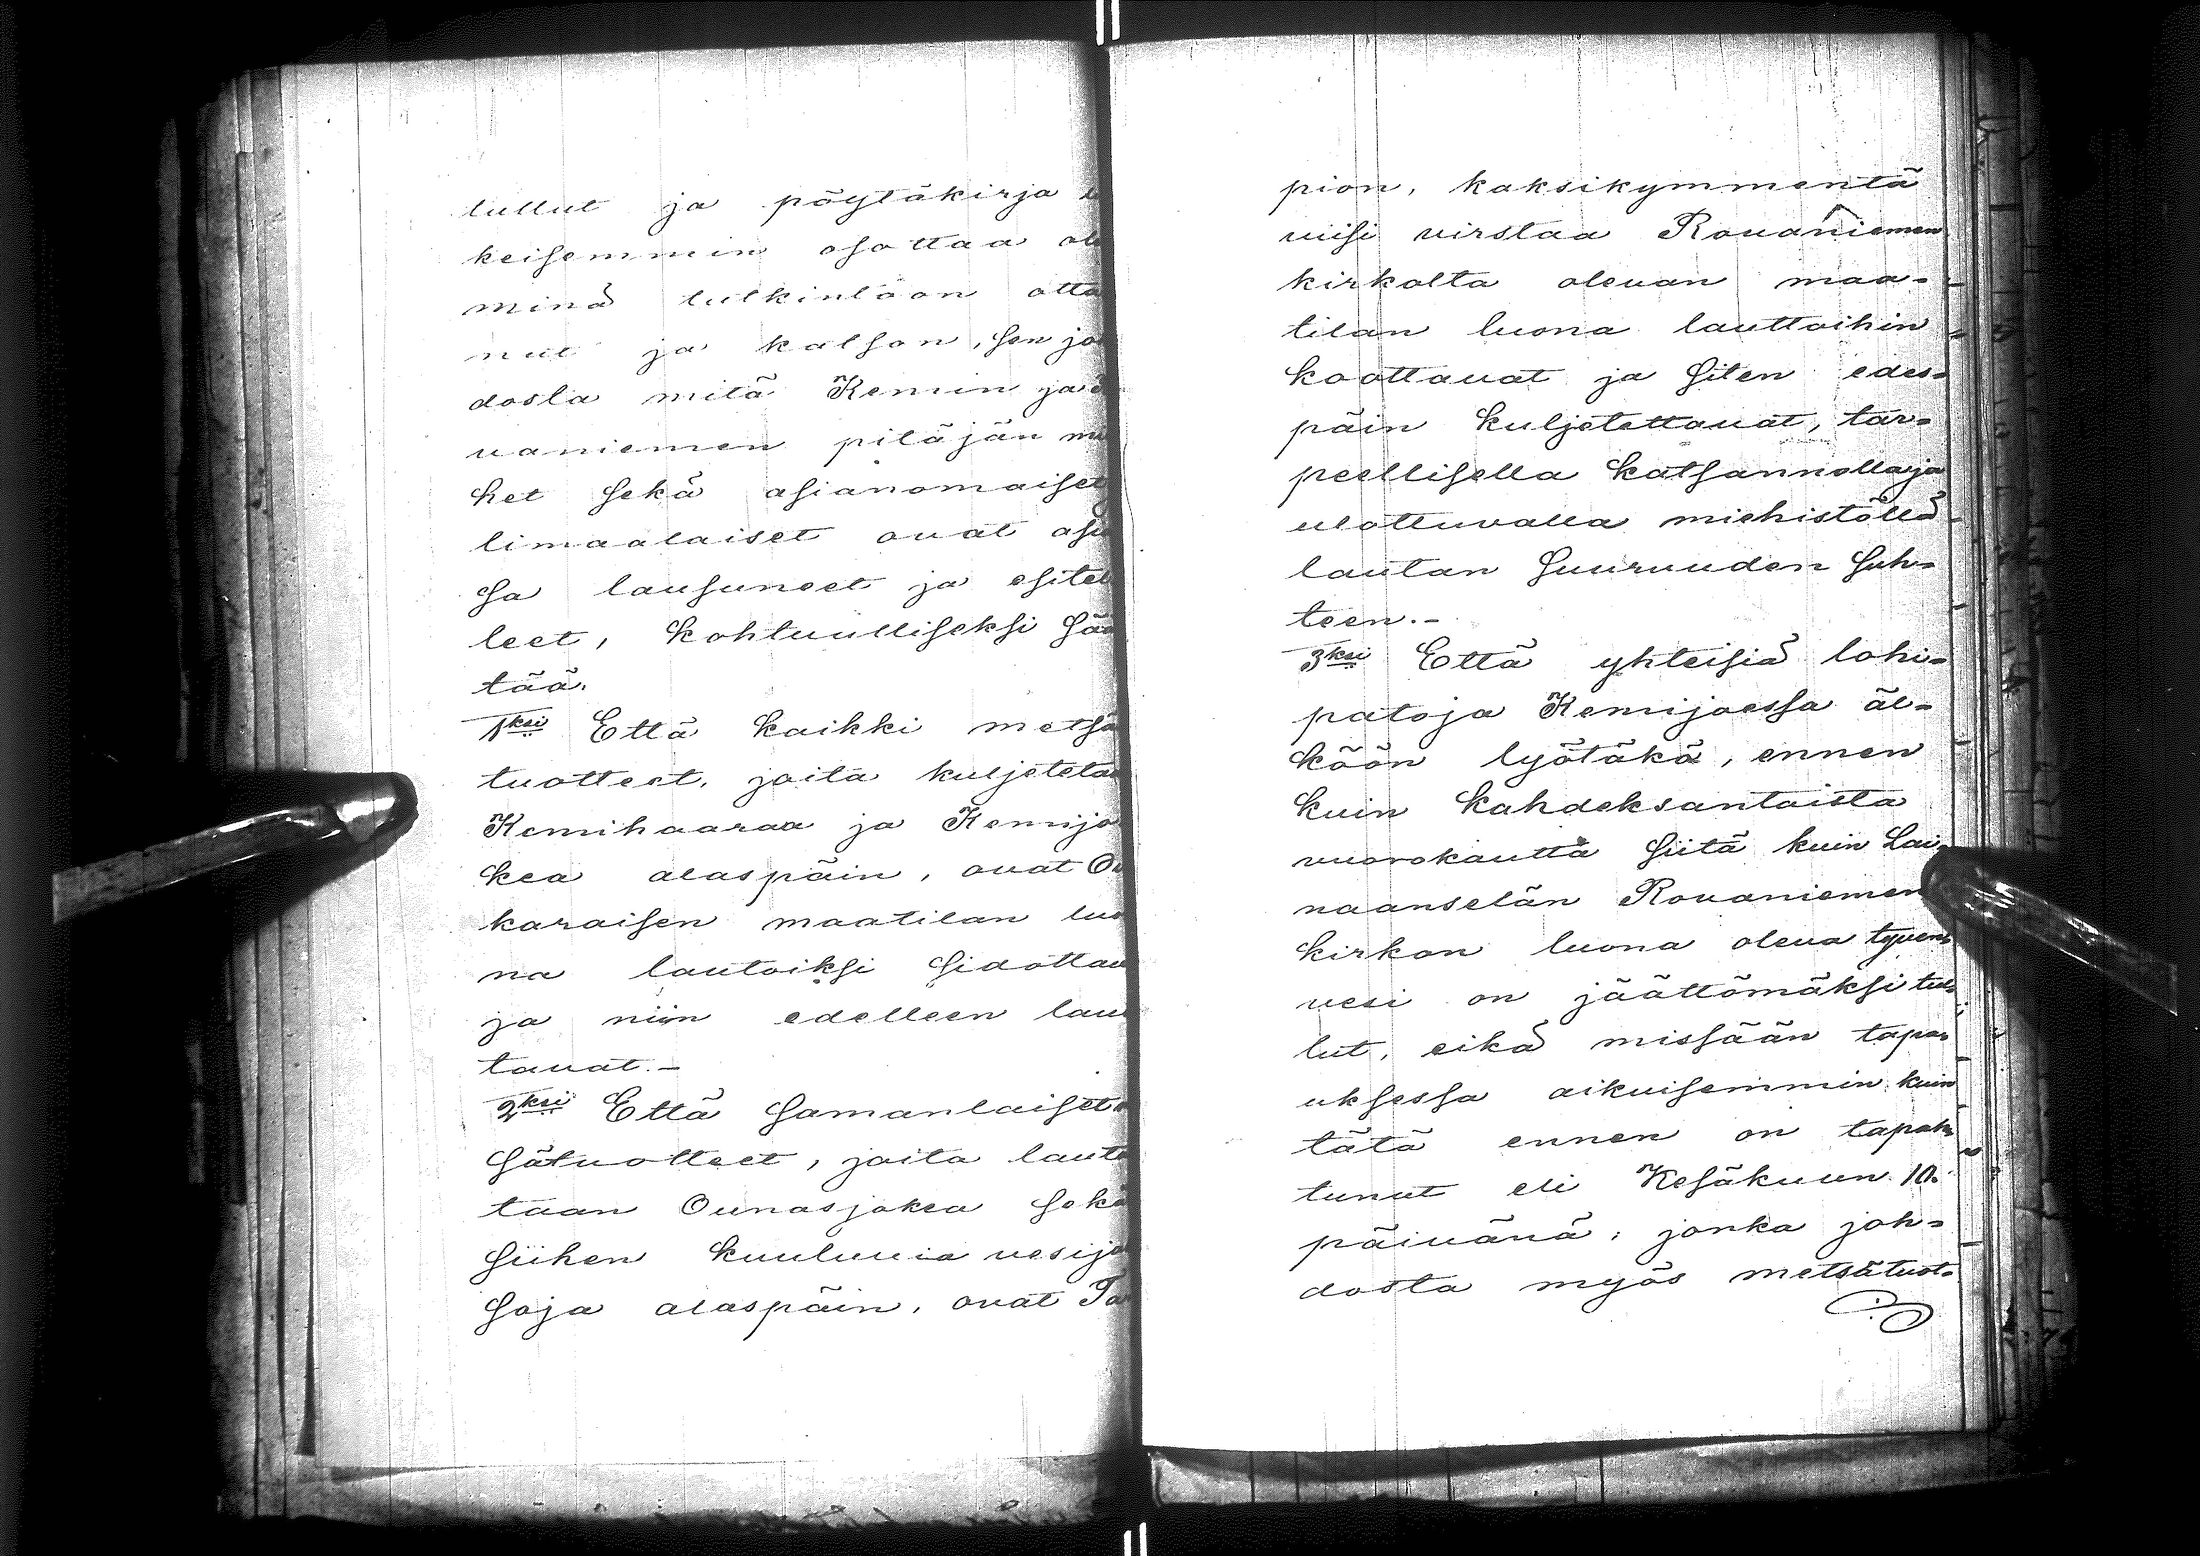 tullut ja pöytäkirja
keisemmin osottaa
minä tutkintoon otta
nut ja katson, sen jo
dosta mitä Kemin ja
vaniemen pitäjän
het sekä asianomaiset
limaalaiset ovat
sa lausuneet ja esitel
leet, kohtuulliseksi sää
tää.
1ksi Että kaikki metsä
tuotteet, joita kuljeteta
Kemihaaraa ja Kemijo
kea alaspäin, ovat
karaisen maatilan luo
na lautoiksi sidottav
ja niin edelleen laut
tavat.-
2ksi Että samanlaiset
sätuotteet, joita laute
taan Ounasjokea sekä
siihen kuuluvia vesijo
soja alaspäin, ovat Ta
pion, kaksikymmentä
viisi virstaa Rovaniemen
kirkolta olevan maa-
tilan luona lauttoihin
koottavat ja siten edes-
päin kuljetettavat, tar-
peellisella katsannolla ja
ulottuvalla miehistöllä
lautan suuruuden suh-
teen.-
3ksi Että yhteisiä lohi-
patoja Kemijoessa äl-
köön lyötäkö, ennen
kuin kahdeksantoista
vuorokautta siitä kuin Lai-
naanselän Rovaniemen
kirkon luona oleva tyven
vesi on jäättömäksi tul-
lut, eikä missään tapa-
uksessa aikuisemmin kuin
tätä ennen on tapah-
tunut eli Kesäkuun 10.
päivänä; jonka joh-
dosta myös metsätuot-